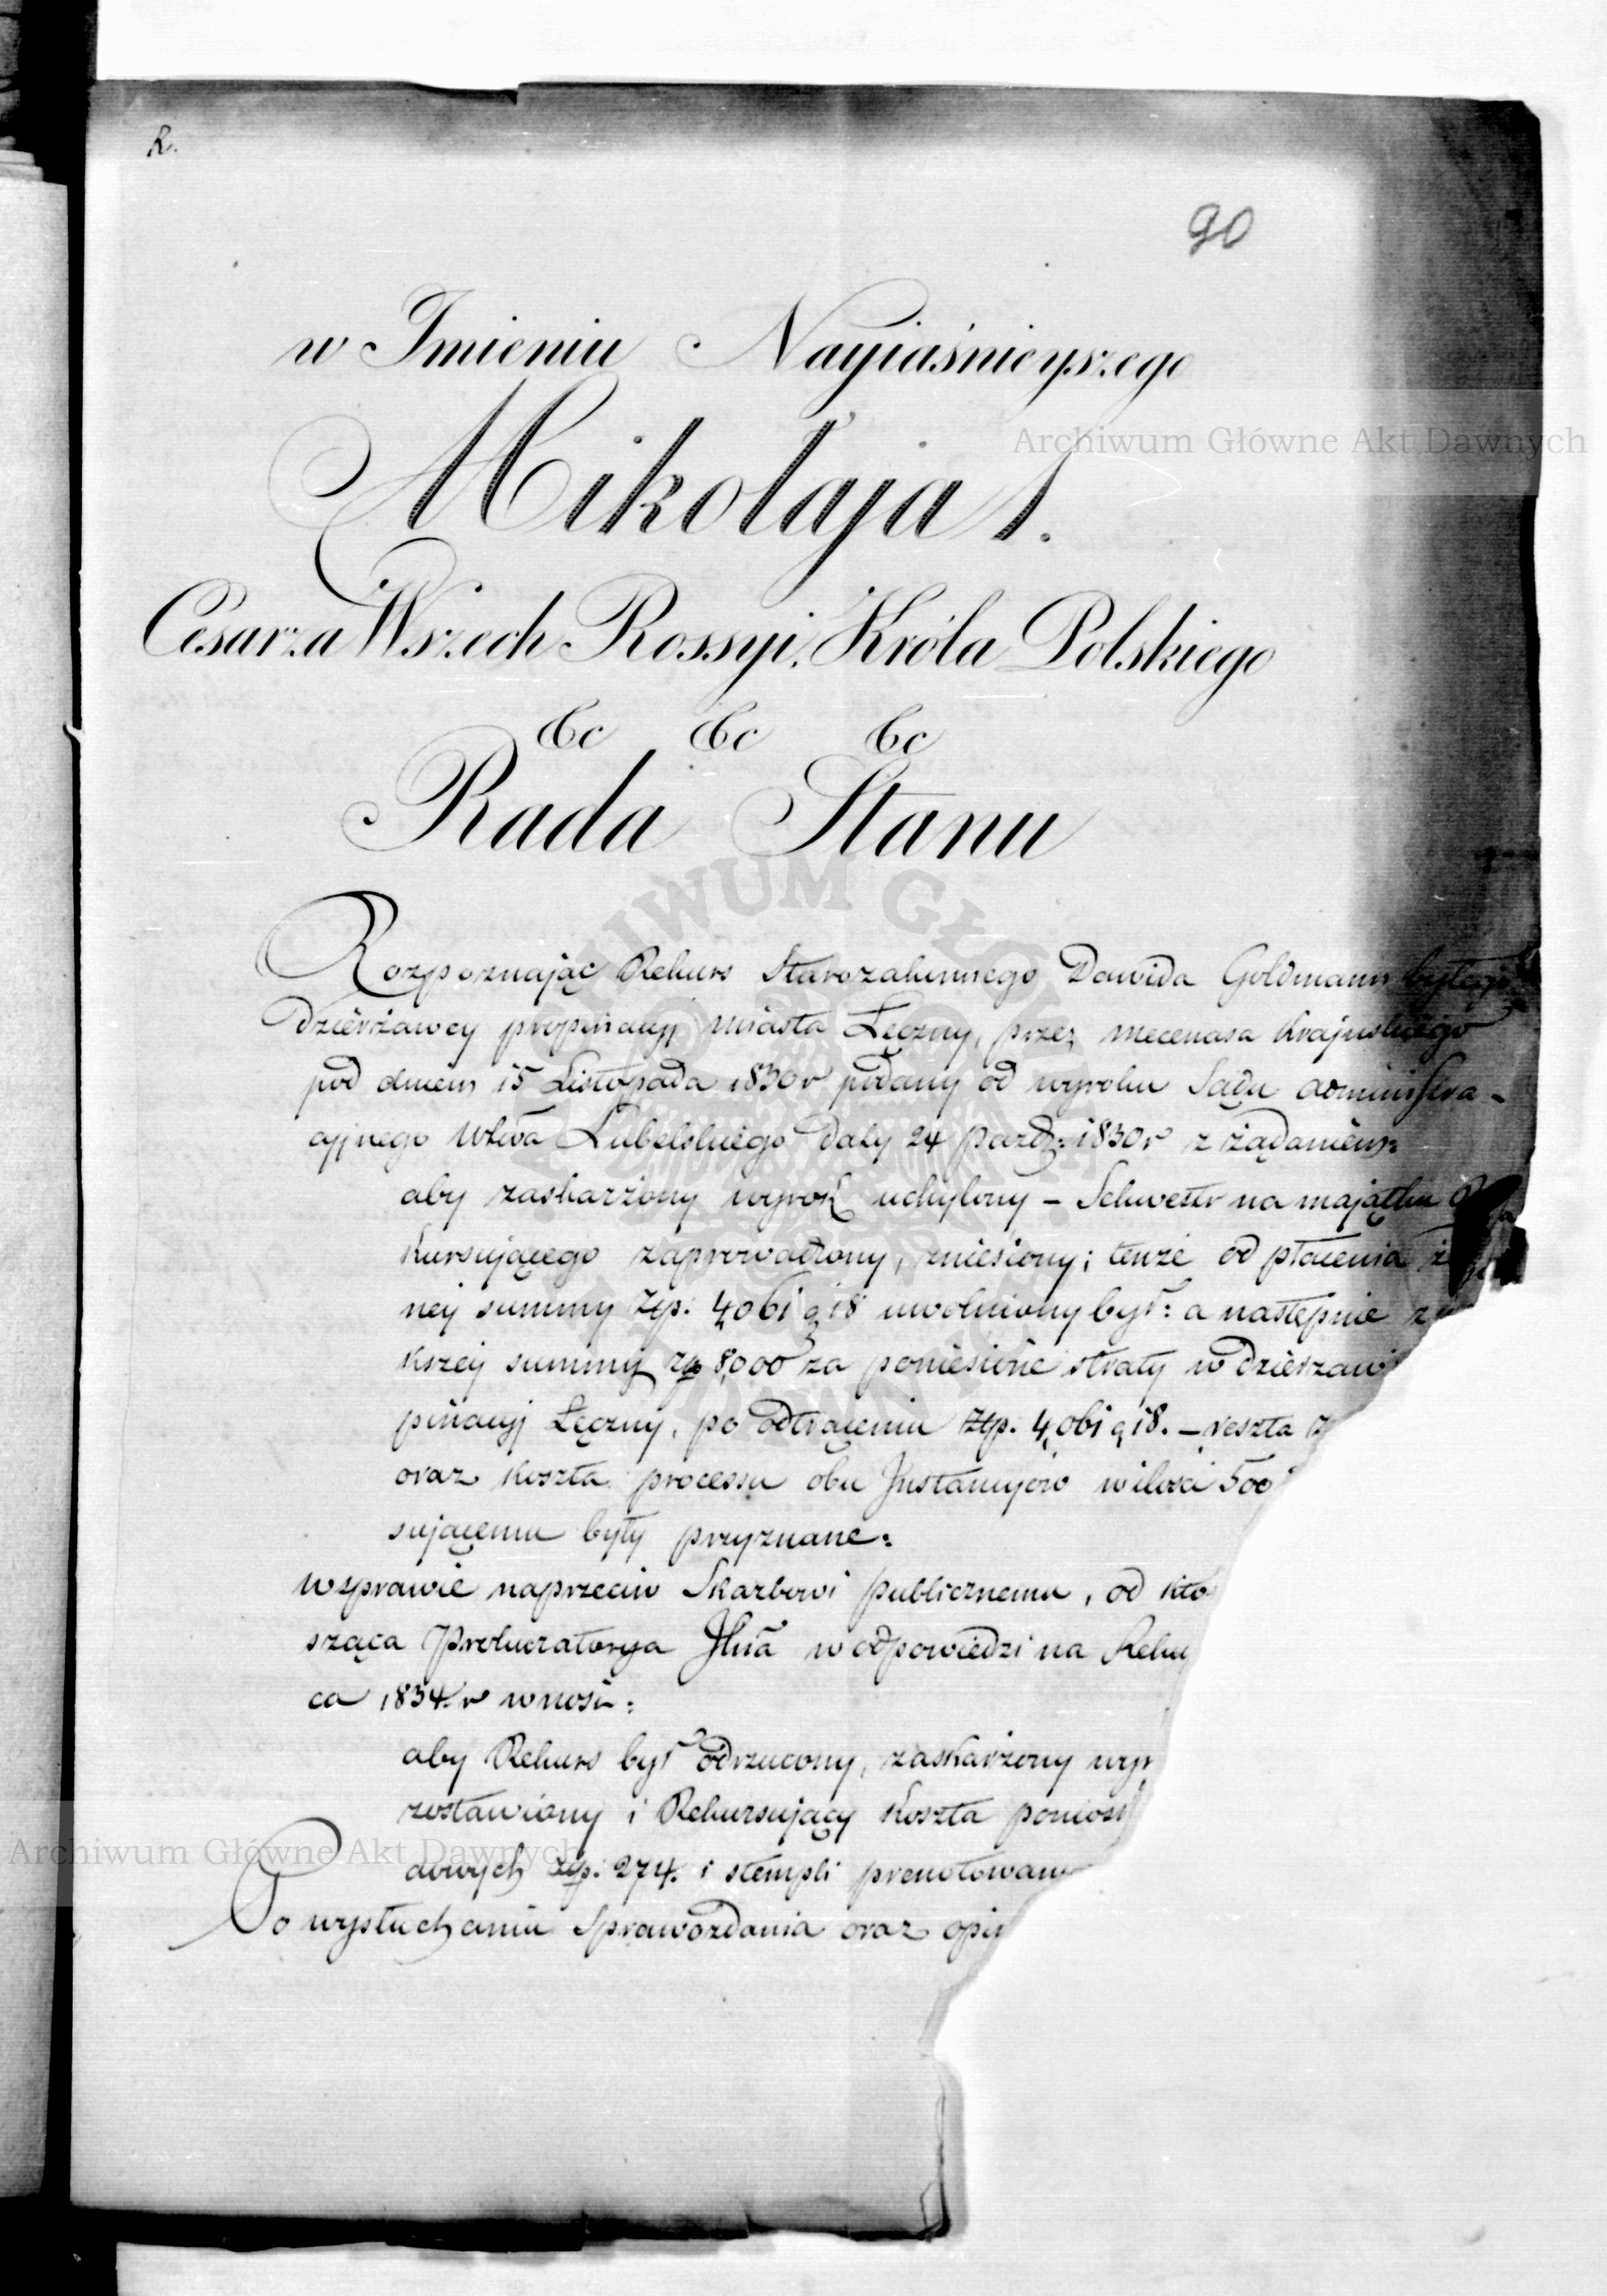 R.
90
w Imieniu Nayiaśnieyszego
Mikołaja 1.
Cesarza Wszech Rossyi, Króla Polskiego
&c &c &c
Rada Stanu
Rozpoznając Rekurs Starozakonnego Dawida Goldmann byłego
Dzierżawcy propinacyj miasta Łęczny, przez mecenasa Krajewskiego
pod dniem 15 Listopada 1830 r podany od wyroku Sądu administra-
cyjnego Wdztwa Lubelskiego daty 24 Paźdz: 1830 r z żądaniem:
aby zaskarżony wyrok uchylony – Sekwestr na majątku Re
kursującego zaprowadzony, zniesiony; tenże od płacenia
ney summy Złp. 4,061 g 18 uwolniony był: a następnie z
kszej summy złp 8,000 za poniesione straty w dzierżaw
pinacyj Łęczny, po odtrąceniu złp. 4,061 g 18. – reszta
oraz koszta processu obu Instancyjów w ilości 500
sującemu były przyznane:
w sprawie naprzeciw Skarbowi publicznemu, od któ
sząca Prokuratorya Jlna w odpowiedzi na Reku
ca 1834. r wnosi:
aby Rekurs był odrzucony, zaskarżony wyr
zostawiony i Rekursujący koszta poniosł
dowych złp. 274. i stempli prenotowan
Po wysłuchaniu Sprawozdania oraz opin
Archiwum Główne Akt Dawnych
Archiwum Główne Akt Dawnych